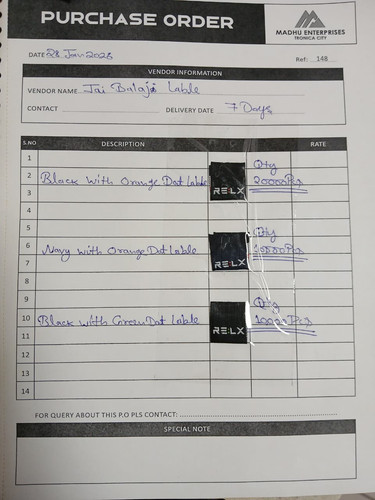 PURCHASE ORDER
MADHU ENTERPRISES
TRONICA CITY
DATE 28 Jan 2026
Ref: 148
VENDOR INFORMATION
VENDOR NAME Jai Balaji Lable
CONTACT
DELIVERY DATE 7 Days
S.NO DESCRIPTION RATE
1
2 Black with Orange Dot Lable RELX Qty
3 20000 Pcs
4
5 Qty
6 Navy with Orange Dot Lable RELX 10000 Pcs
7
8
9 Qty
10 Black with Green Dot Lable RELX 10000 Pcs
11
12
13
14
FOR QUERY ABOUT THIS P.O PLS CONTACT:
SPECIAL NOTE